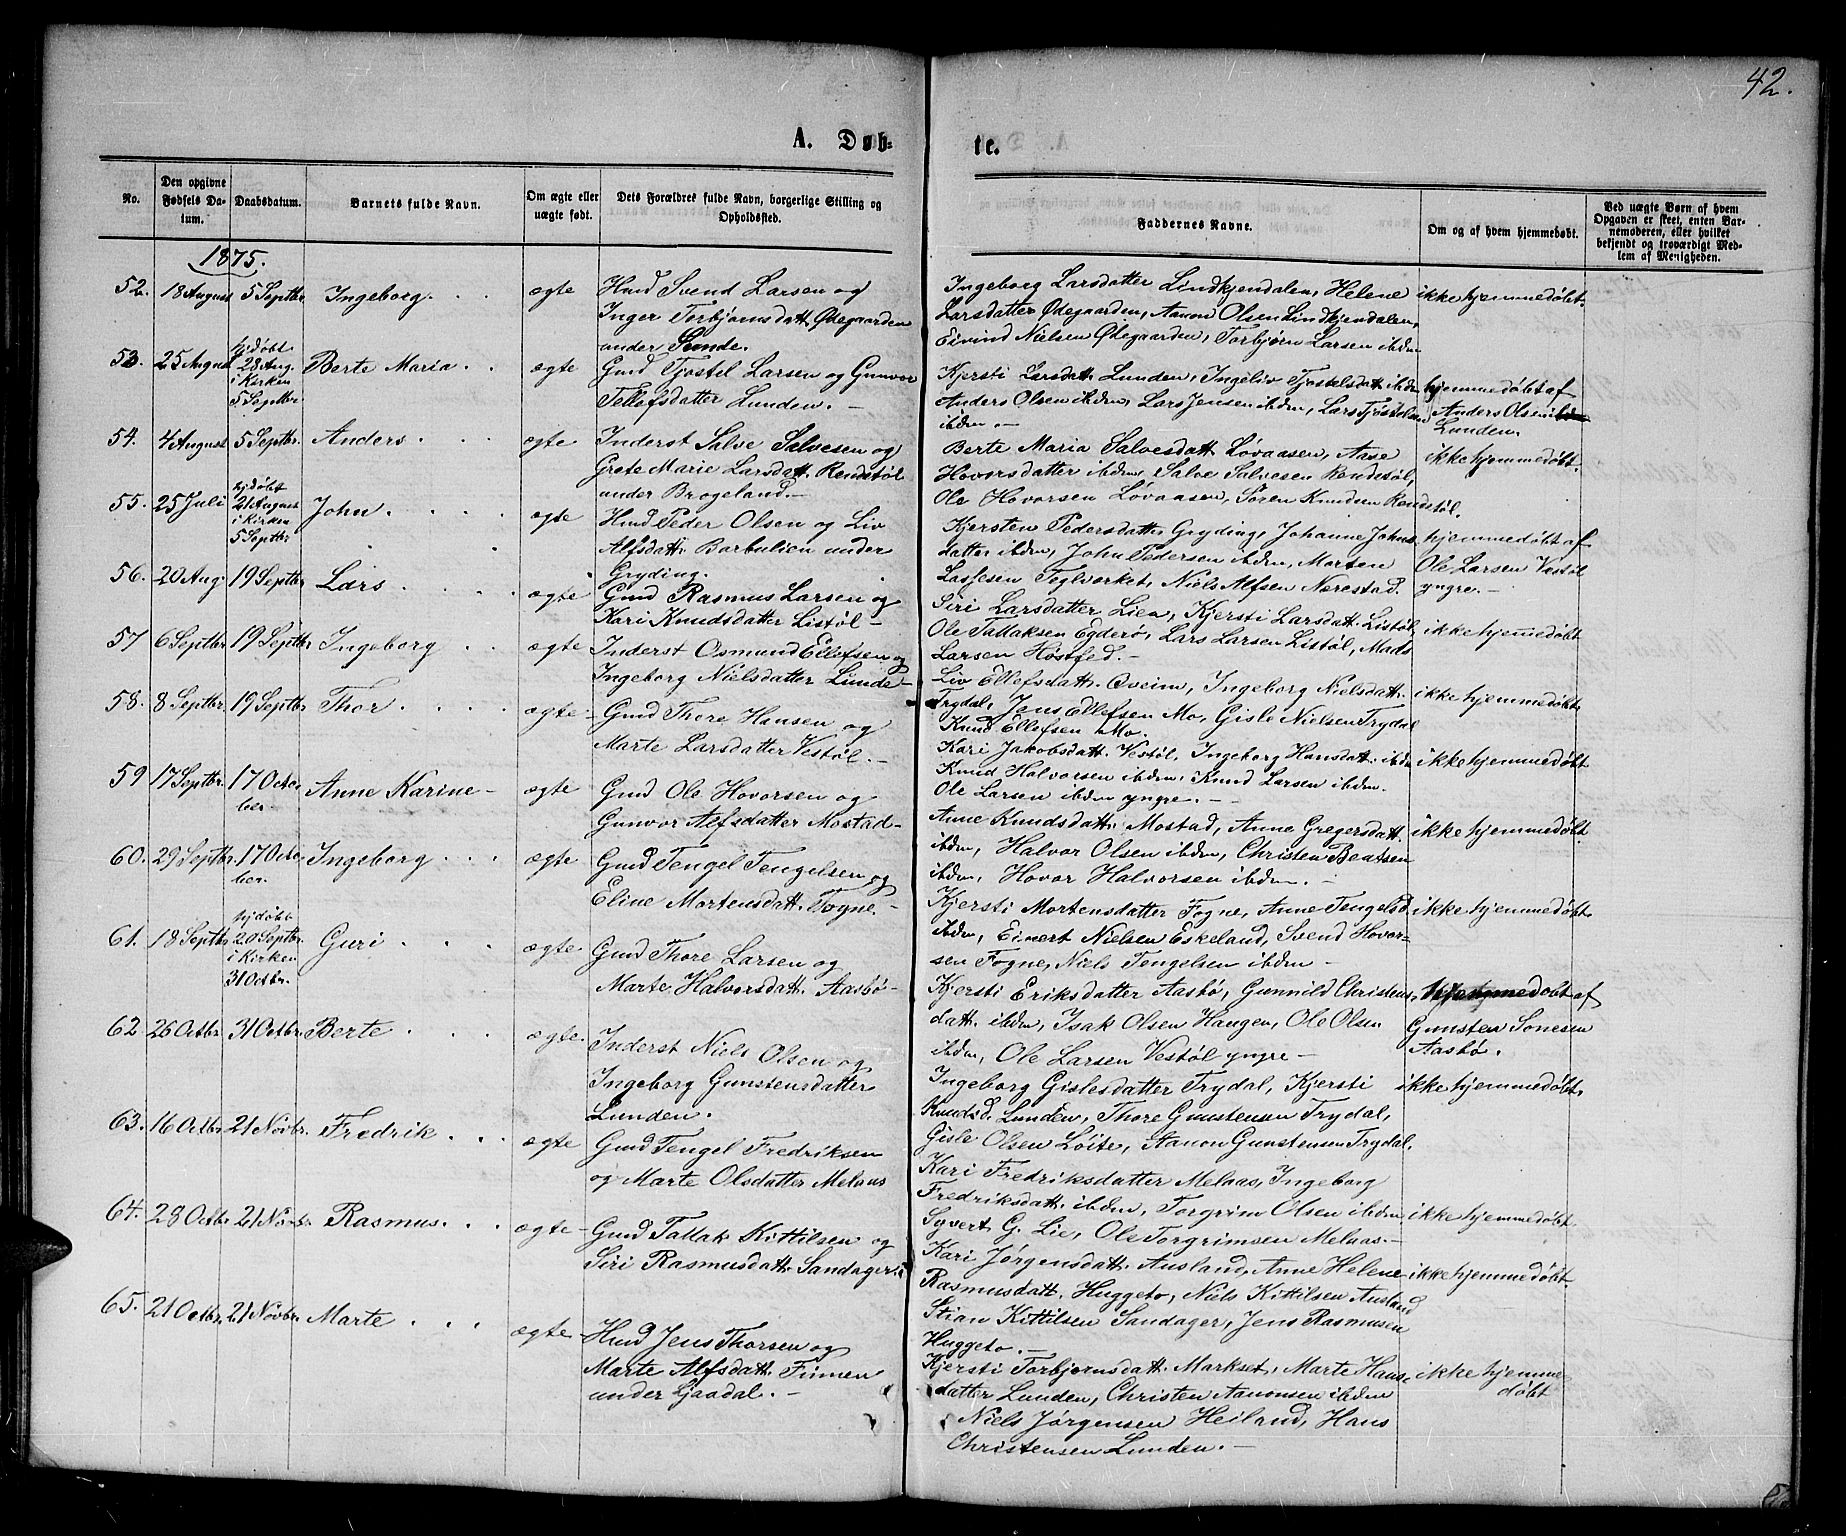 42.
A. Døb-
te.
No.
Den opgivne Fødsels Da-tum.
Daabsdatum.
Barnets fulde Navn.
Om ægte eller uægte født.
Dets Forældres fulde Navn, borgerlige Stilling og Opholdssted.
Faddernes Navne.
Om og af hvem hjemmedøbt.
Ved uægte Børn af hvem Opgaven er skeet, enten Bar-nemoderen, eller hvilket bekjendt og troværdigt Med-lem af Menigheden.
1875.
52. 18 August 5 Septbr. Ingeborg. ægte
Hmd Svend Larsen og
Inger Torbjørnsdatt. Ødegaarden
under Sunde.
Ingeborg Larsdatter Lindkjendalen, Helene
Larsdatter Ødegaarden, Aanon Olsen Lindkjendalen,
Eivind Nielsen Ødegaarden, Torbjørn Larsen ibdm
ikke hjemmedøbt.
53. 25 August hjdøbt 28 Aug. i Kirken 5 Septbr Berte Maria. ægte
Gmd Tjostel Larsen og Gunvor
Tellefsdatter Lunden. -
Kjersti Larsdatt. Lunden, Ingeliv Tjostelsdatt. ibdm
Anders Olsen ibdm, Lars Jensen ibdm, Lars Tjostelsen
ibdm. -
hjemmedøbt af
Anders Olsen
Lunden.
54. 4 August 5 Septbr. Anders. ægte
Inderst Salve Salvesen og
Grete Marie Larsdatt. Rendstøl
under Brogeland. -
Berte Maria Salvesdatt Løvaasen, Aase
Hovorsdatter ibdm, Salve Salvesen Rendstøl,
Ole Hovorsen Løvaasen, Søren Knudsen Rendstøl.
ikke hjemmedøbt.
55. 25 Juli hjdøbt 21 August i Kirken 5 Septbr John. ægte
Hmd Peder Olsen og Liv
Alfsdatt. Barbulien under
Gryding.
Kjersten Pedersdatt. Gryding, Johanne Johns-
datter ibdm, John Pedersen ibdm, Morten
Lassesen Teglverket, Niels Alfsen Nærestad.
hjemmedøbt af
Ole Larsen Vestøl
yngre. -
56. 20 Aug. 19 Septbr Lars. ægte
Gmd Rasmus Larsen og
Kari Knudsdatter Listøl -
Siri Larsdatter Lien, Kjersti Larsdatt. Listøl,
Ole Tallaksen Egderø, Lars Larsen Listøl, Mads
Larsen Høstfed. -
ikke hjemmedøbt
57 6 Septbr 19 Septbr Ingeborg ægte
Inderst Osmund Ellefsen og
Ingeborg Nielsdatter Lunde -
Liv Ellefsdatt. Øveim, Ingeborg Nielsdatt.
Trydal, Jens Ellefsen Mo, Gisle Nielsen Trydal
Knud Ellefsen Mo.
ikke hjemmedøbt.
58. 8 Septbr. 19 Septbr. Thor. ægte -
Gmd Thore Hansen og
Marte Larsdatter Vestøl. -
Kari Jakobsdatt. Vestøl, Ingeborg Hansdatt. ibdm
Knud Halvorsen ibdm, Knud Larsen ibdm.
Ole Larsen ibdm yngre. -
ikke hjemmedøbt.
59 17 Septbr. 17 Octo-ber Anne Karine - ægte
Gmd Ole Hovorsen og
Gunvor Alfsdatter Mostad -
Anne Knudsdatt. Mostad, Anne Gregersdatt.
ibdm, Halvor Olsen ibdm, Christen Beatsen
ibdm, Hovor Halvorsen ibdm. -
ikke hjemmedøbt.
60. 29 Septbr. 17 Octo-ber. Ingeborg. ægte
Gmd Tengel Tengelsen og
Eline Mortensdatt. Fogne. -
Kjersti Mortensdatter Fogne, Anne Tengelsd.
ibdm, Einert Nielsen Eskeland, Svend Hovor-
sen Fogne, Niels Tengelsen ibdm -
ikke hjemmedøbt.
61. 18 Septbr hjdøbt 20 Septbr. i Kirken 31 Octbr. Guri. ægte
Gmd Thore Larsen og
Marte Halvorsdatt. Aasbø -
Kjersti Eriksdatter Aasbø, Gunnild Christens-
datt. ibdm, Isak Olsen Haugen, Ole Olsen
ibdm, Ole Larsen Vestøl yngre -
hjemmedøbt af
Gunsten Sonesen
Aasbø.
62 26 Octbr. 31 Octbr. Berte. ægte.
Inderst Niels Olsen og
Ingeborg Gunstensdatter
Lunden.
Ingeborg Gislesdatter Trydal, Kjersti
Knudsd. Lunden, Thore Gunstensen Trydal,
Gisle Olsen Løite, Aanon Gunstensen Trydal.
ikke hjemmedøbt.
63. 16 Octbr. 21 Novbr. Fredrik. ægte
Gmd Tengel Fredriksen
og Marte Olsdatter Melaas
Kari Fredriksdatter Melaas, Ingeborg
Fredriksdatt. ibdm, Torgrim Olsen ibdm
Syvert G. Lie, Ole Torgrimsen Melaas. -
ikke hjemmedøbt.
64. 28 Octbr. 21 Novbr. Rasmus. ægte -
Gmd Tallak Kittilsen og
Siri Rasmusdatt. Sandager.
Kari Jørgensdatt. Ausland, Anne Helene
Rasmusdatt. Huggeto, Niels Kittilsen Ausland
Stian Kittilsen Sandager, Jens Rasmusen
Huggeto. -
ikke hjemmedøbt.
65. 21 Octbr. 21 Novbr. Marte. ægte
Hmd Jens Thorsen og
Marte Alfsdatt. Finnen
under Gjaadal. -
Kjersti Torbjørnsdatt. Markset, Marte Hans-
datter Lunden, Christen Aanonsen ibdm
Niels Jørgensen Heiland, Hans
Christensen Lunden. -
ikke hjemme-
døbt